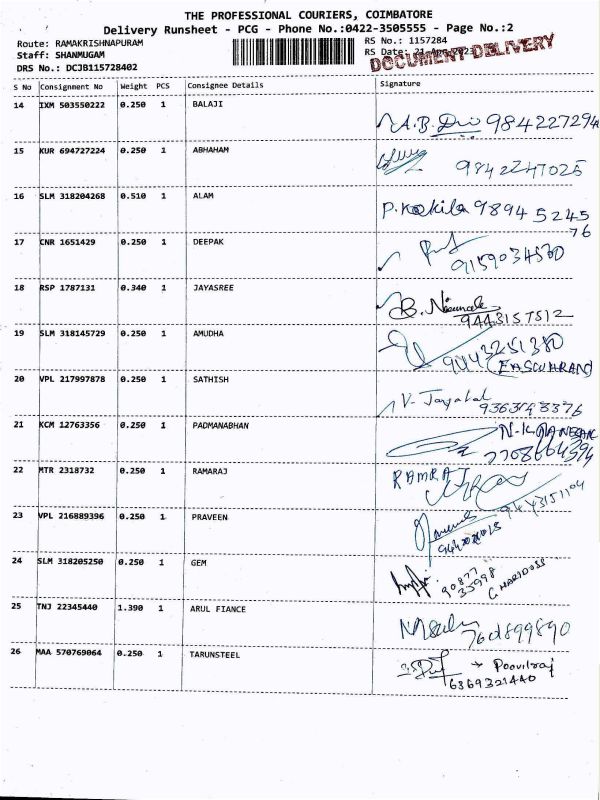 THE PROFESSIONAL COURIERS, COIMBATORE
Delivery Runsheet - PCG - Phone No.:0422-3505555 - Page No.:2
Route: RAMAKRISHNAPURAM
RS No.: 1157284
Staff: SHANMUGAM
RS Date: 21-Apr-2023
DOCUMENT DELIVERY
DRS No.: DCJB115728402
S No Consignment No Weight PCS Consignee Details Signature
14 IXM 503550222 0.250 1 BALAJI
A.B. 984227294
15 KUR 694727224 0.250 1 ABHAHAM
9842247025
16 SLM 318204268 0.510 1 ALAM
P. Kokila 98945 5245
76
17 CNR 1651429 0.250 1 DEEPAK
9159034500
18 RSP 1787131 0.340 1 JAYASREE
B.
9443157512
19 SLM 318145729 0.250 1 AMUDHA
9443251380
(EASWARAN)
20 VPL 217997878 0.250 1 SATHISH
V. Jayalal
21 KCM 12763356 0.250 1 PADMANABHAN
N.K.
7708664394
22 MTR 2318732 0.250 1 RAMARAJ
RAMRAJ
9443151104
23 VPL 216889396 0.250 1 PRAVEEN
24 SLM 318205250 0.250 1 GEM
90877
35998
C HARIDOSS
25 TNJ 22345440 1.390 1 ARUL FIANCE
26 MAA 570769064 0.250 1 TARUNSTEEL
Poovilraj
6369321440